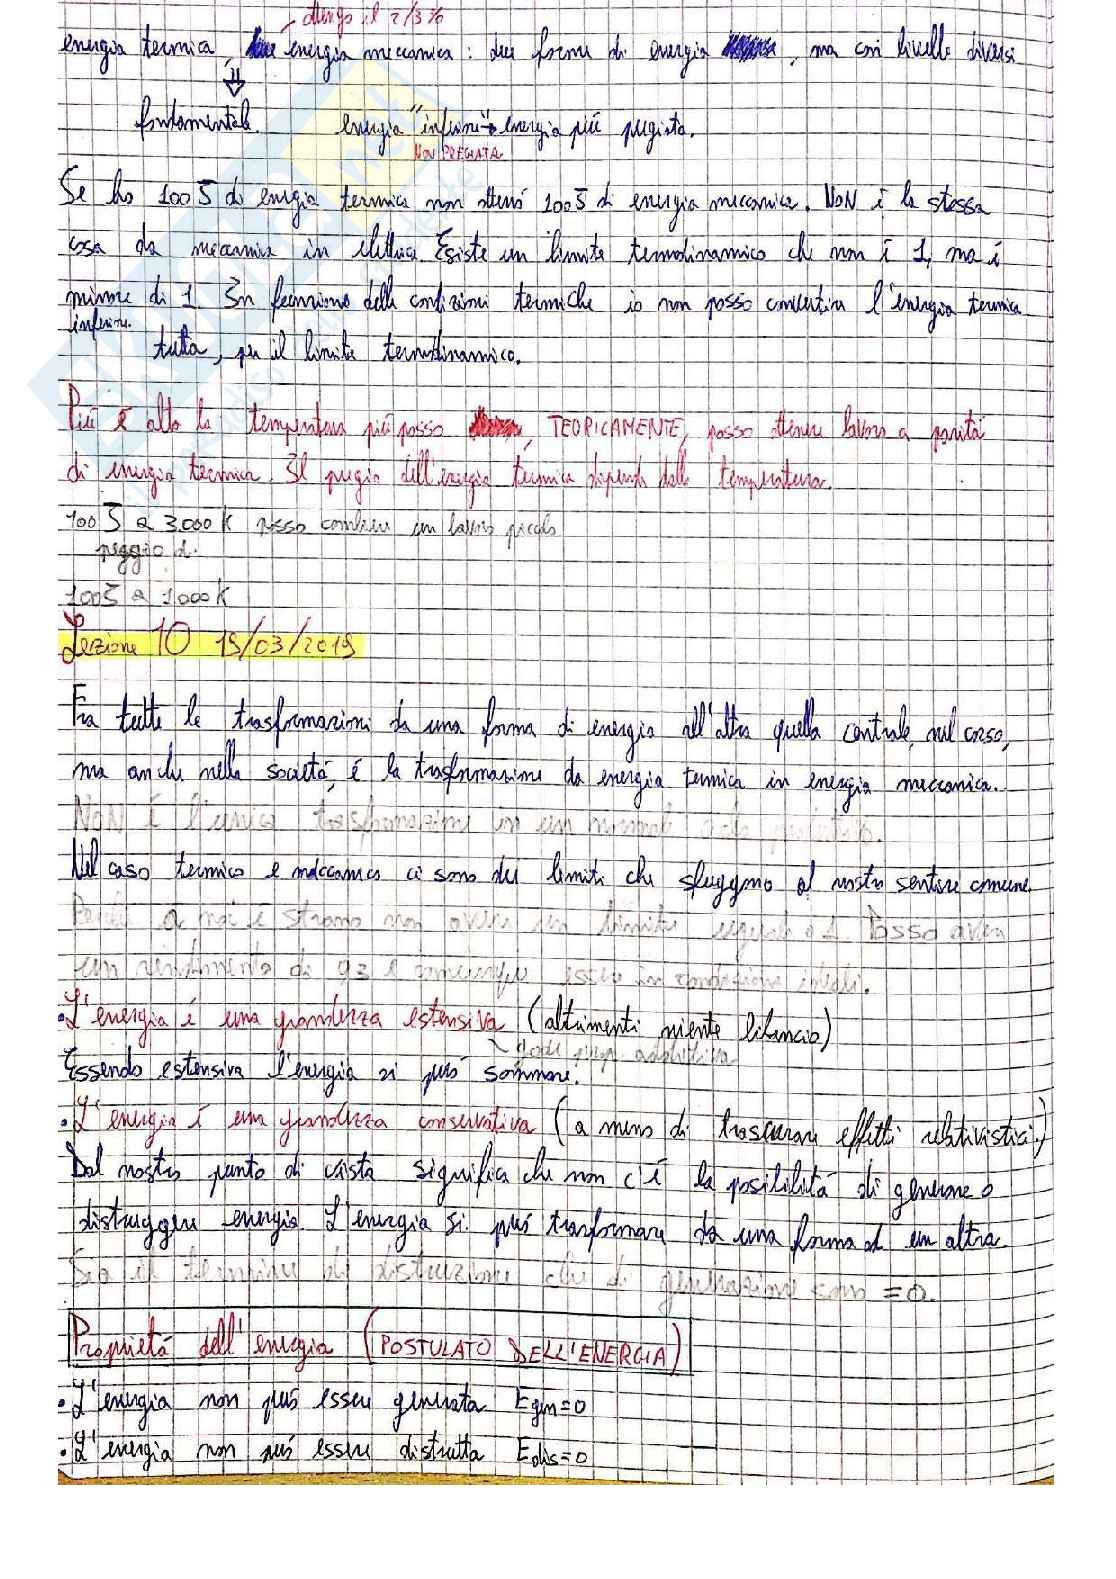 ottengo il 2/3%
energia termica, energia meccanica: due forme di energia, ma con livello diversi
fondamentale. energia "inferiore" → energia più pregiata.
NON PREGIATA
Se ho 100 J di energia termica non otterrò 100 J di energia meccanica. NON è la stessa
cosa da meccanica in elettrica. Esiste un limite termodinamico che non è 1, ma è
minore di 1. In funzione delle condizioni termiche io non posso convertire l'energia termica
inferiore.
tutta, per il limite termodinamico.
Più è alta la temperatura più posso, TEORICAMENTE, posso ottenere lavoro a parità
di energia termica. Il pregio dell'energia termica dipende dalla temperatura.
100 J a 3.000 K posso compiere un lavoro piccolo
peggio di.
100 J a 1000 K
Lezione 10 19/03/2019
Fra tutte le trasformazioni da una forma di energia all'altra quella centrale, nel corso,
ma anche nella società, è la trasformazione da energia termica in energia meccanica.
NON è l'unica trasformazione in un mondo
Nel caso termico e meccanico ci sono dei limiti che sfuggono al nostro sentire comune.
Perché a noi è strano non avere un limite uguale a 1. Posso avere
un rendimento di 93 e comunque essere in condizioni ideali.
• L'energia è una grandezza estensiva (altrimenti niente bilancio)
gode prop. additiva
Essendo estensiva l'energia si può sommare.
• L'energia è una grandezza conservativa (a meno di trascurare effetti relativistici)
Dal nostro punto di vista significa che non c'è la possibilità di generare o
distruggere energia. L'energia si può trasformare da una forma ad un altra.
Sia il termine di distruzione che di generazione sono = 0.
Proprietà dell'energia (POSTULATO DELL'ENERGIA)
• L'energia non può essere generata Egen=0
• L'energia non può essere distrutta Edis=0